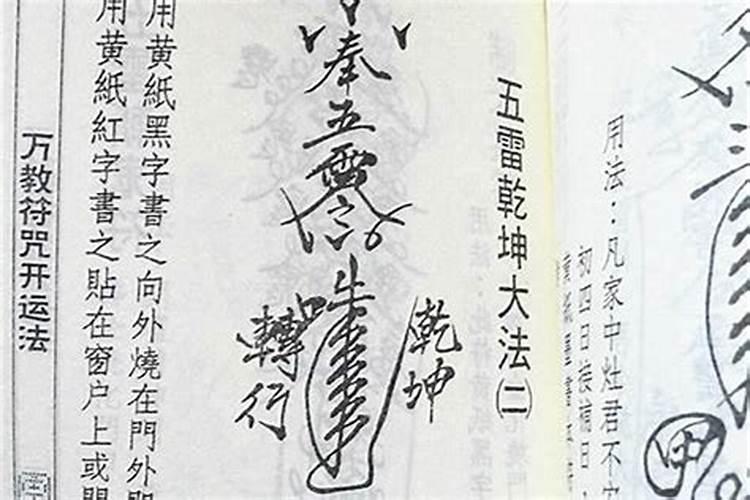 三
甲
用法：凡家中灶君不
初四日接
五雷乾坤大法(二)
乾坤
奉五雷
轉行
用黄紙黑字書之向外燒在門外即
用黄紙紅字書之貼在窗户上或
万教符咒开运法